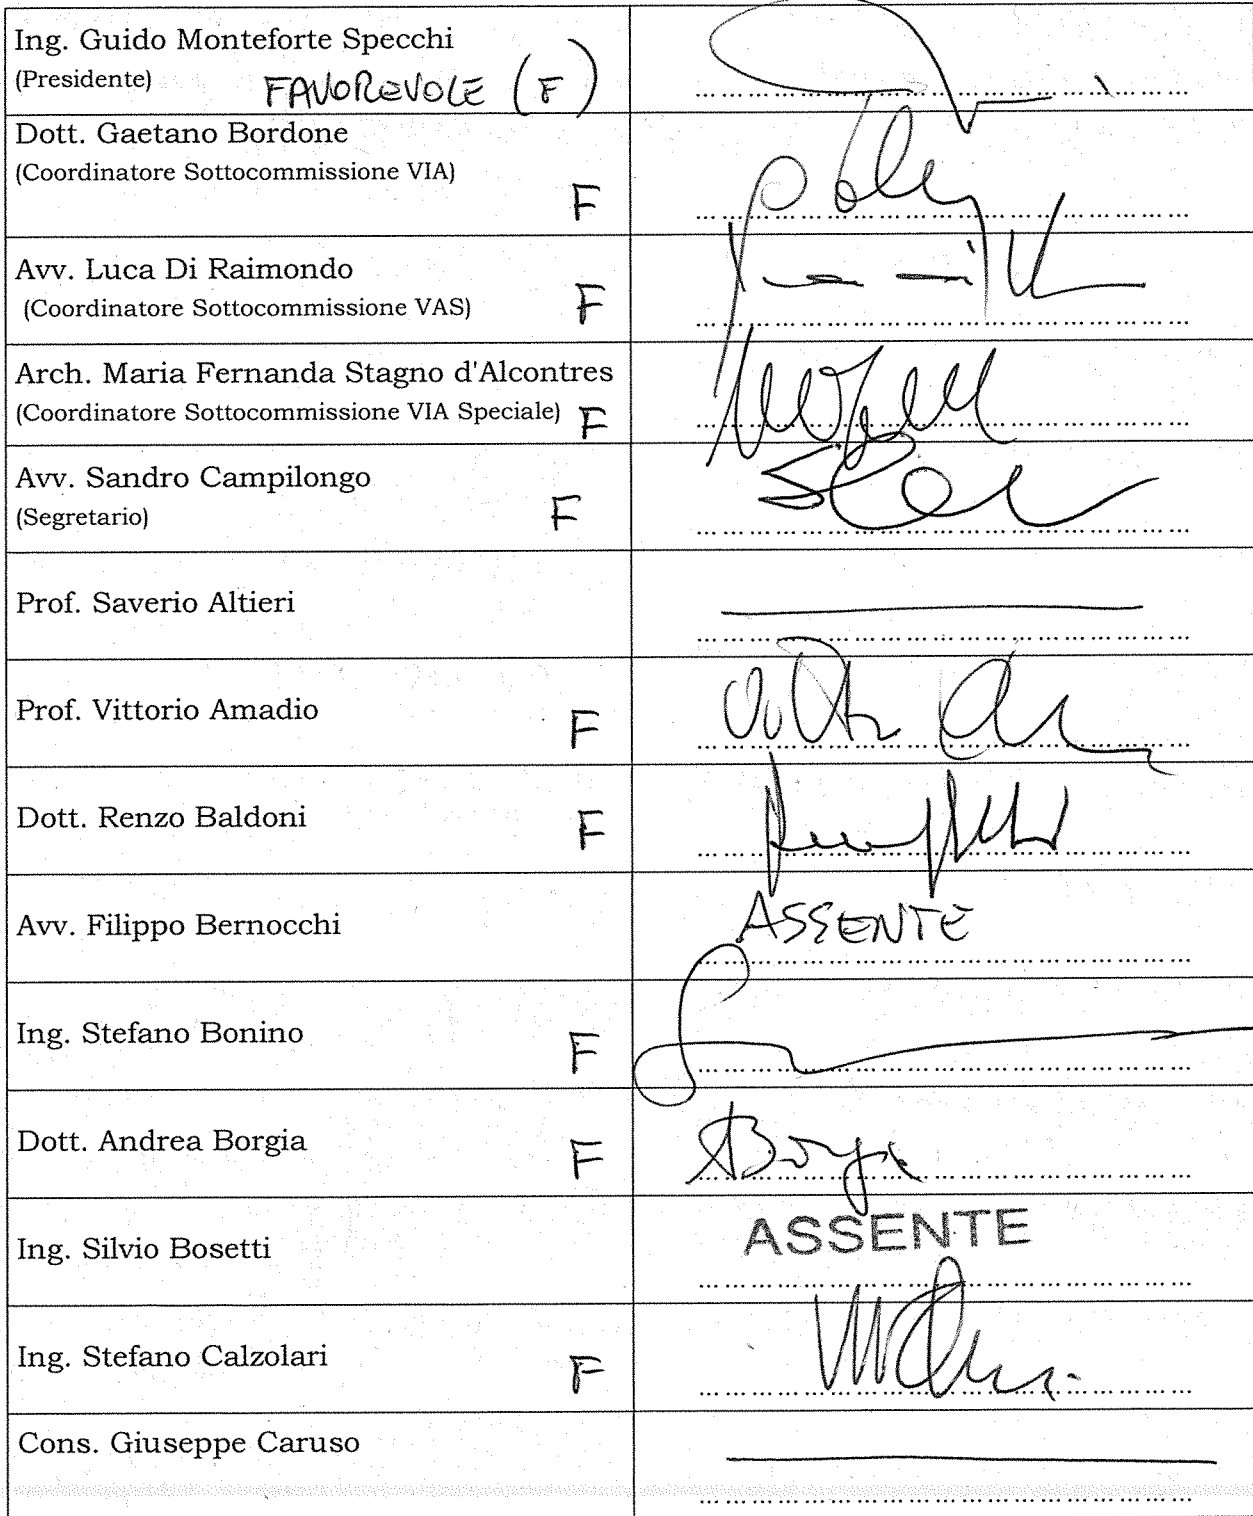 Ing. Guido Monteforte Specchi
(Presidente) FAVOREVOLE (F)
Dott. Gaetano Bordone
(Coordinatore Sottocommissione VIA)
F
Avv. Luca Di Raimondo
(Coordinatore Sottocommissione VAS) F
Arch. Maria Fernanda Stagno d'Alcontres
(Coordinatore Sottocommissione VIA Speciale) F
Avv. Sandro Campilongo
(Segretario) F
Prof. Saverio Altieri
Prof. Vittorio Amadio F
Dott. Renzo Baldoni F
Avv. Filippo Bernocchi ASSENTE
Ing. Stefano Bonino F
Dott. Andrea Borgia F
Ing. Silvio Bosetti ASSENTE
Ing. Stefano Calzolari F
Cons. Giuseppe Caruso